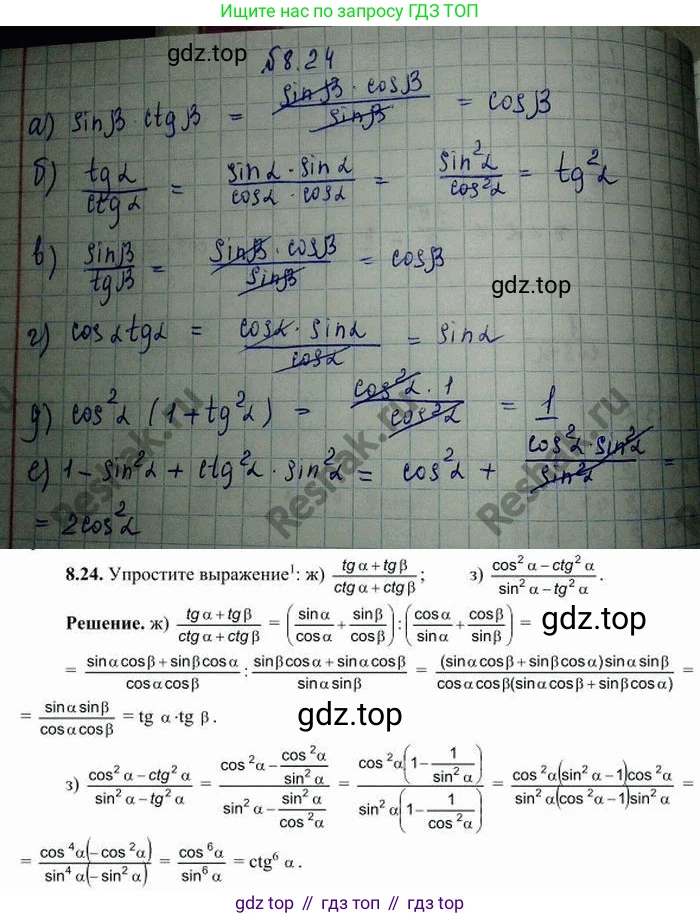 Ищите нас по запросу ГДЗ ТОП
gdz.top
№8.24
а) sinβ · ctgβ = sinβ · cosβ / sinβ = cosβ
б) tgα / ctgα = sinα · sinα / cosα · cosα = sin²α / cos²α = tg²α
в) sinβ / tgβ = sinβ · cosβ / sinβ = cosβ
gdz.top
г) cosα tgα = cosα · sinα / cosα = sinα
д) cos²α (1 + tg²α) = cos²α · 1 / cos²α = 1
е) 1 − sin²α + ctg²α · sin²α = cos²α + cos²α · sin²α / sin²α =
= 2cos²α
Reshak.ru
Reshak.ru
Reshak.ru
8.24. Упростите выражение¹: ж) (tg α + tg β) / (ctg α + ctg β); з) (cos² α − ctg² α) / (sin² α − tg² α).
Решение. ж) (tg α + tg β) / (ctg α + ctg β) = (sin α / cos α + sin β / cos β) : (cos α / sin α + cos β / sin β) =
gdz.top
= (sin α cos β + sin β cos α) / (cos α cos β) : (sin β cos α + sin α cos β) / (sin α sin β) = (sin α cos β + sin β cos α) sin α sin β / cos α cos β (sin α cos β + sin β cos α) =
= sin α sin β / cos α cos β = tg α · tg β.
gdz.top
з) (cos² α − ctg² α) / (sin² α − tg² α) = (cos² α − cos² α / sin² α) / (sin² α − sin² α / cos² α) = cos² α (1 − 1 / sin² α) / sin² α (1 − 1 / cos² α) = cos² α (sin² α − 1) cos² α / sin² α (cos² α − 1) sin² α =
= cos⁴ α (−cos² α) / sin⁴ α (−sin² α) = cos⁶ α / sin⁶ α = ctg⁶ α.
gdz.top // гдз.топ // gdz.top // гдз.топ